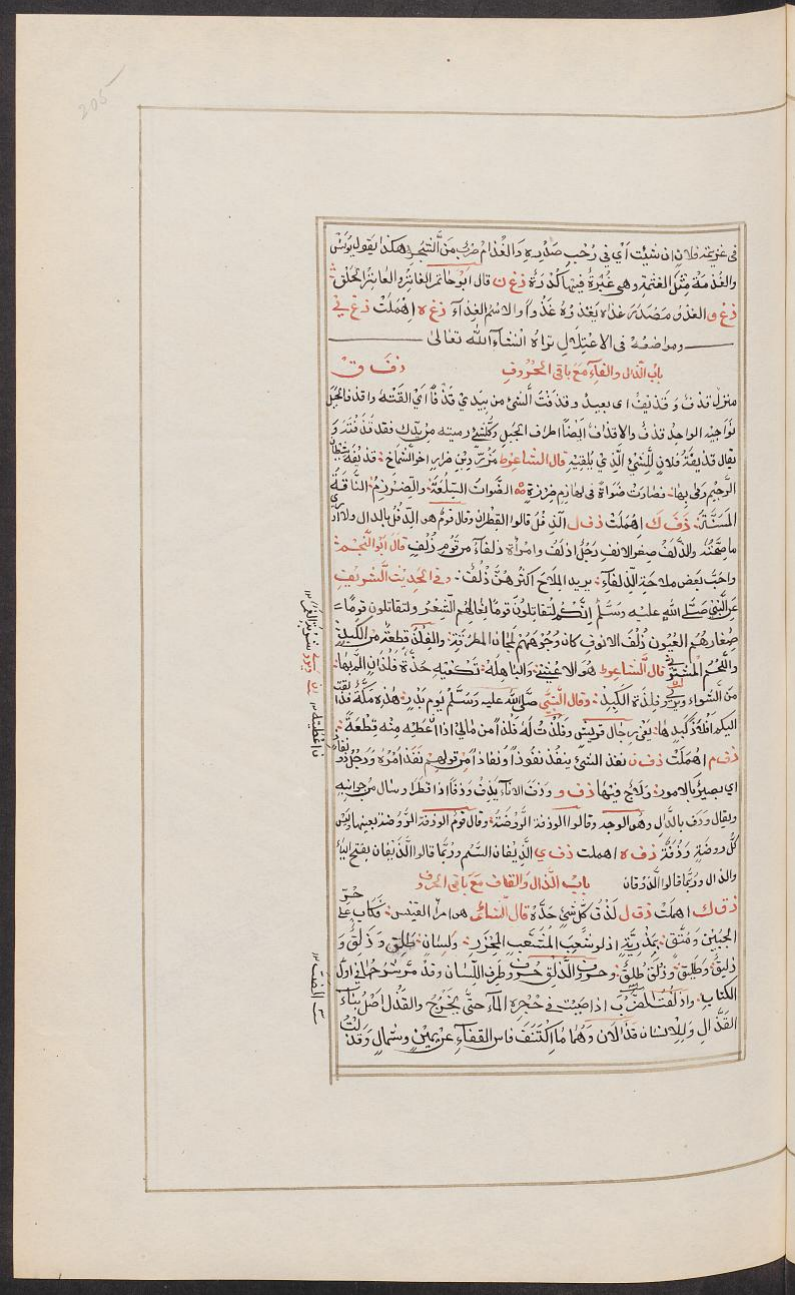 205
في غذيمة فلان ان شئت اي في رحب صدره والغذام ضرب من الشجر هكذا يقول يونس
والغذمة مثل الغثمة وهي غبرة فيها كدرة ذ غ ن قال ابو حاتم الغاذ والعاذ الحلق
ذ غ و الغذو مصدر غذاه يغذوه غذوا والاسم الغذاء ذ غ ه اهملت ذ غ ي
ومواضعه في الاعتلال تراه انشاء الله تعالى
باب الذال والفاء مع باقي الحروف ذ ف ق
منزل قذف وقذيف اي بعيد وقذفت الشئ من يدي قذفا اي القته واقذف الجبل
نواحيه الواحد قذف والاقذاف ايضا اطراف الجبل وكل شئ رميته من يدك فقد قذفته و
يقال قذيفة فلان للشئ الذي يلقيه قال الشاعر مزرد بن ضرار اخو الشماخ قذيفة شيطان
الرجيم رمى بها فصارت ضواة في لهازم ضرزم الضواة السلعة والضرزم الناقة
المسنة ذ ف ك اهملت ذ ف ل الذفل قالوا القطران وقال قوم هو الدفل بالدال ولا ادري
ما صحته والذلف صغر الانف رجل اذلف وامرأة ذلفاء من قوم ذلف قال ابو النجم
واحب بعض ملاحة الذلفاء يريد الملاح اكثرهن ذلف وفي الحديث الشريف
عن النبي صلى الله عليه وسلم انكم لتقاتلون قوما نعالهم الشعر ولتقاتلون قوما
صغار هم العيون ذلف الانوف كان وجوههم المجان المطرقة والفلذ قطعة من الكبد
واللحم المشتوى قال الشاعر هو الاعشى والباهلة تكفيه حذة فلذان الم بها
من الشواء ويروي فلذة الكبد وقال النبي صلى الله عليه وسلم يوم بدر هذه مكة قد القت
اليكم افلاذ كبدها يعني رجال قريش وفلذت له فلذا من مالي اذا اعطيه منه قطعة
ذ ف م اهملت ذ ف ن نفذ الشئ ينفذ نفوذا ونفاذا من قولهم نفذ امره ورجل ذو نفاذ
اي بصير بالامور ولاج فيها ذ ف و وذف الاناء يذف وذفا اذا قطر وسال من جوانبه
ويقال ودف بالدال وهو الوجه وقالوا الوذفة الروضة وقال قوم الوذفة الروضة بعينها ليس
كل روضة وذفة ذ ف ه اهملت ذ ف ي الذيفان السم وربما قالوا الذيفان بفتح الياء
والذال وربما قالوا الذوفان باب الذال والقاف مع باقي الحروف
ذ ق ك اهملت ذ ق ل لذق كل شئ حده قال الشاعر هو امرأ القيس فكاب على حر
الجبين ومتق بمذرية اذلق شعب المتشعب المخزر ولسان طلق وذلق و
ذليق وطليق وذلق طلق وحروف الذلق حروف طرف اللسان وقد مر شرحها في اول
الكتاب واذلقت الضب اذا صببت في جحره الماء حتى يخرج والقذل اصل بناء
القذال وللانسان قذالان وهما ما اكتنف فاس القفاء عن يمين وشمال وقذلت